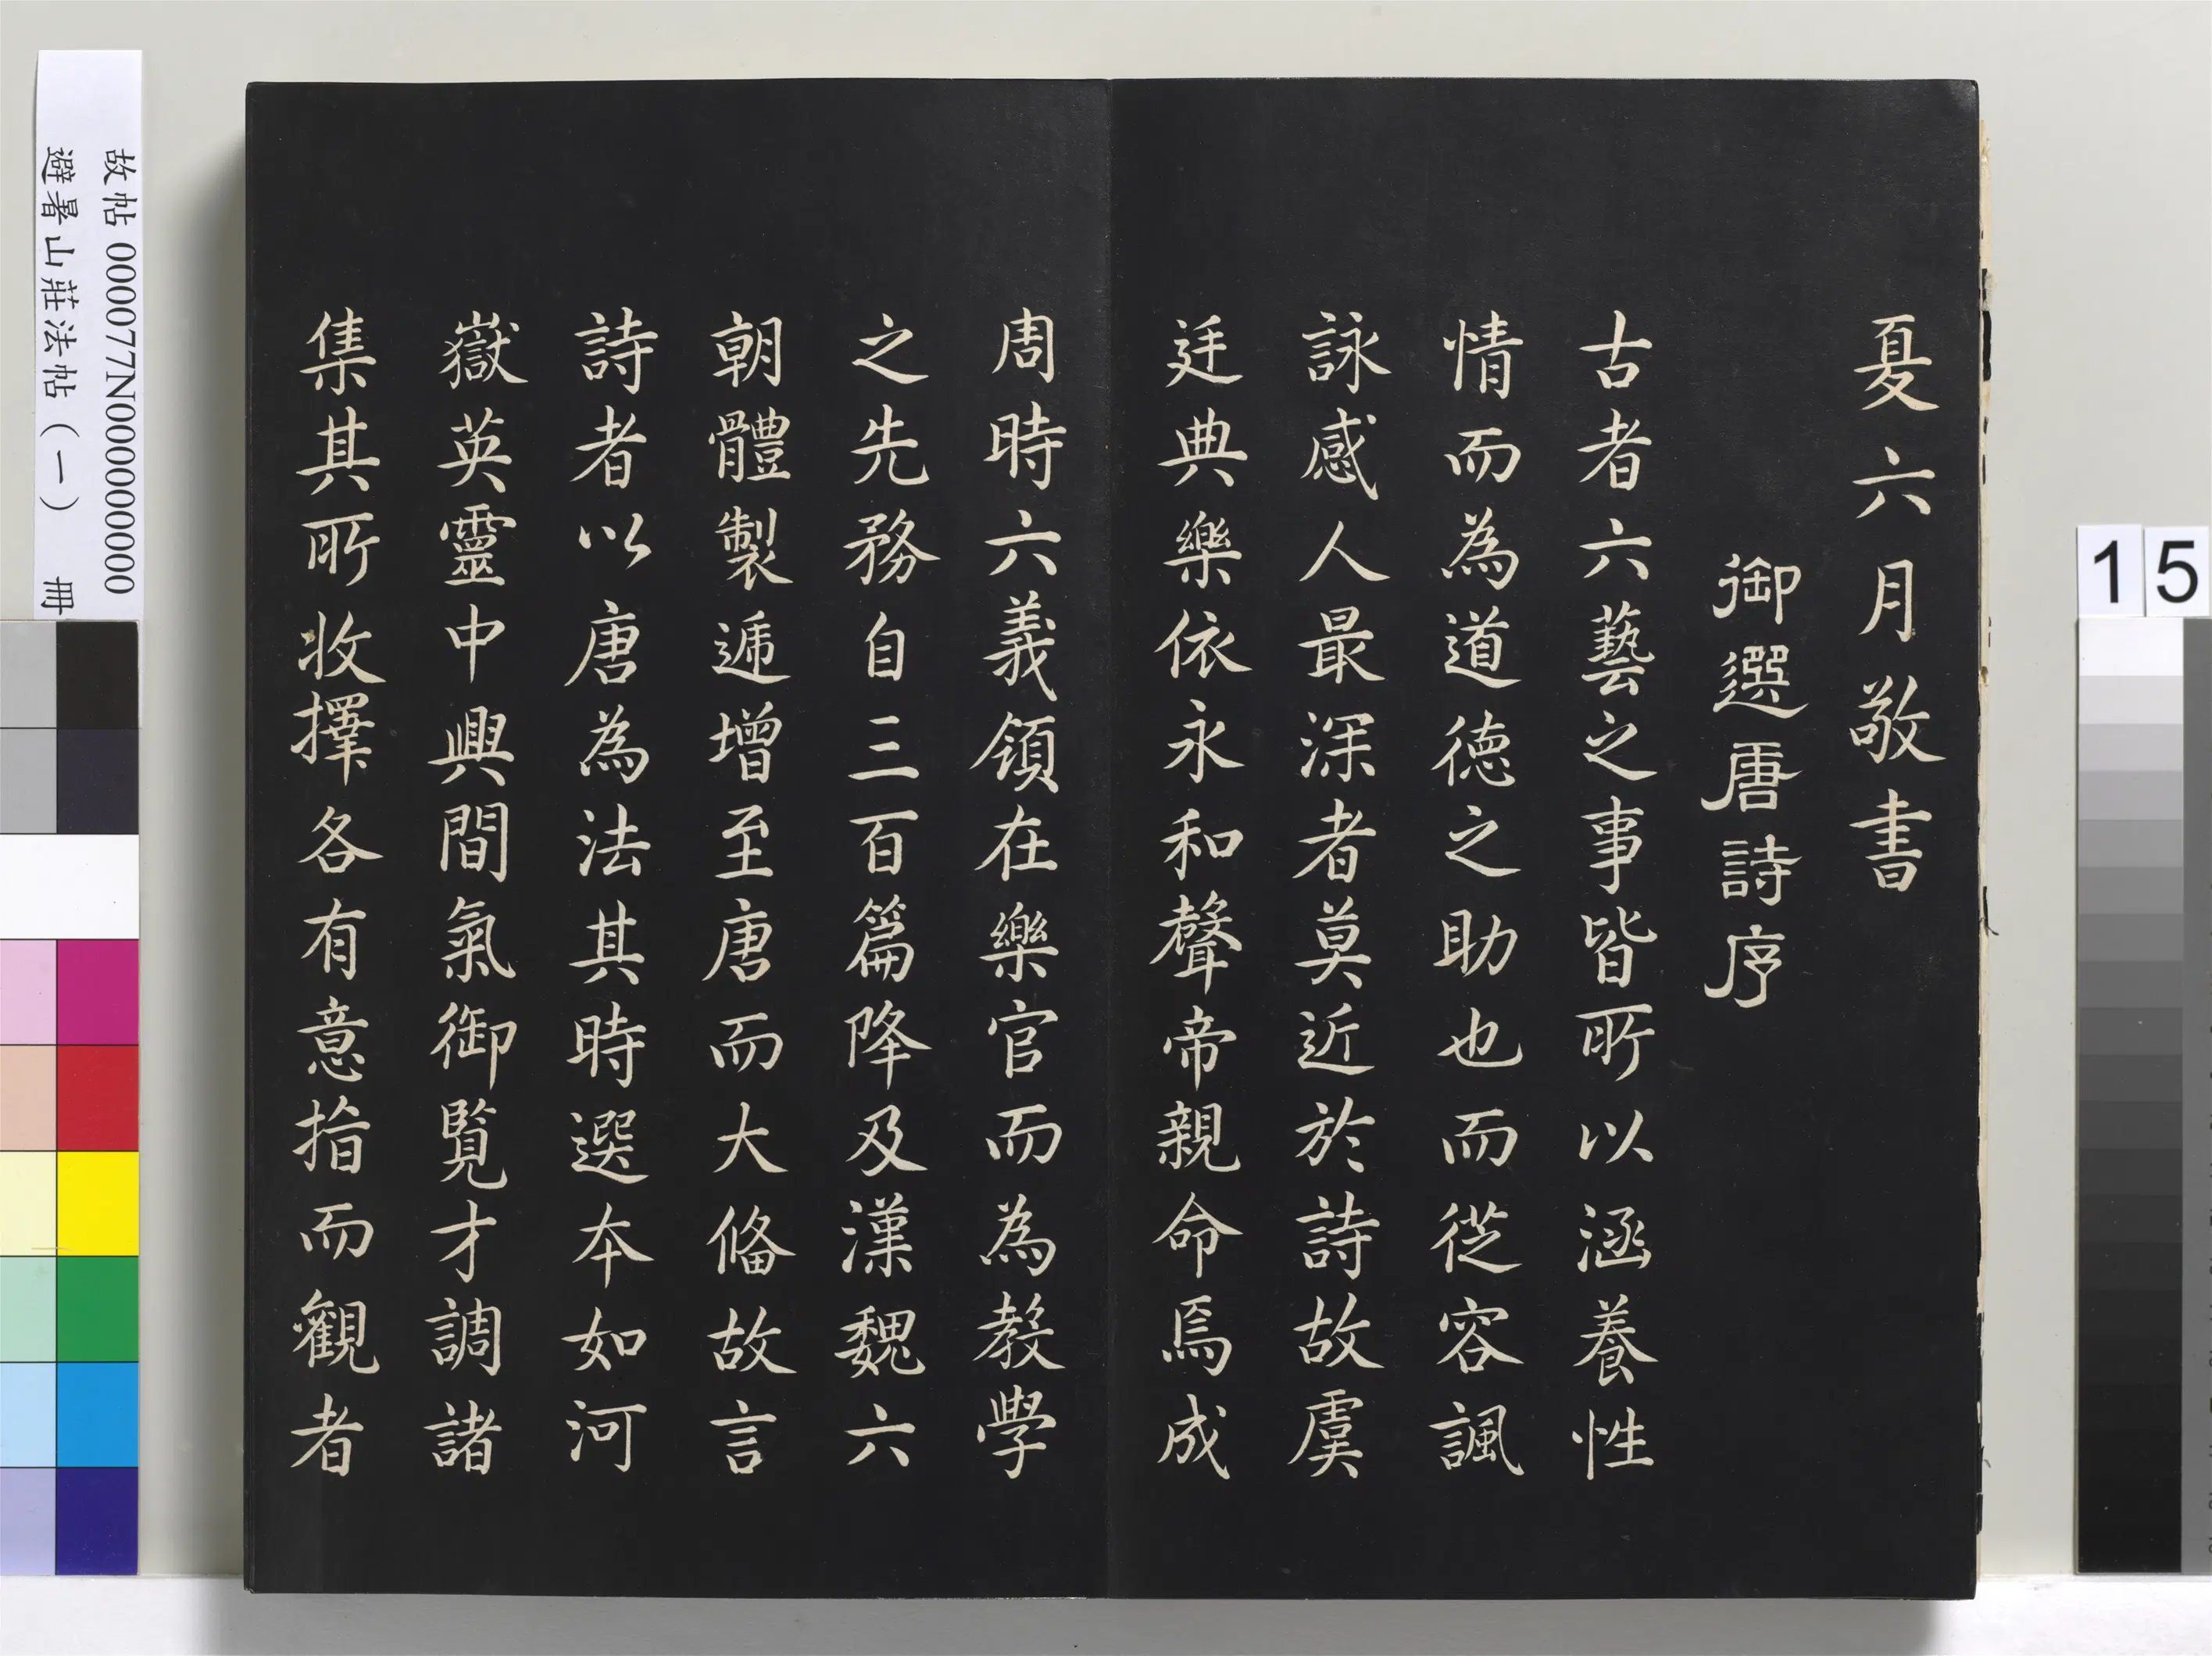 夏六月敬書
御選唐詩序
古者六藝之事皆所以涵養性
情而為道徳之助也而從容諷
詠感人最深者莫近於詩故虞
廷典樂依永和聲帝親命焉成
周時六義領在樂官而為教學
之先務自三百篇降及漢魏六
朝體製遞增至唐而大俻故言
詩者以唐為法其時選本如河
嶽英靈中興間氣御覽才調諸
集其所收擇各有意指而觀者
故帖 000077N000000000
避暑山莊法帖(一) 冊
15